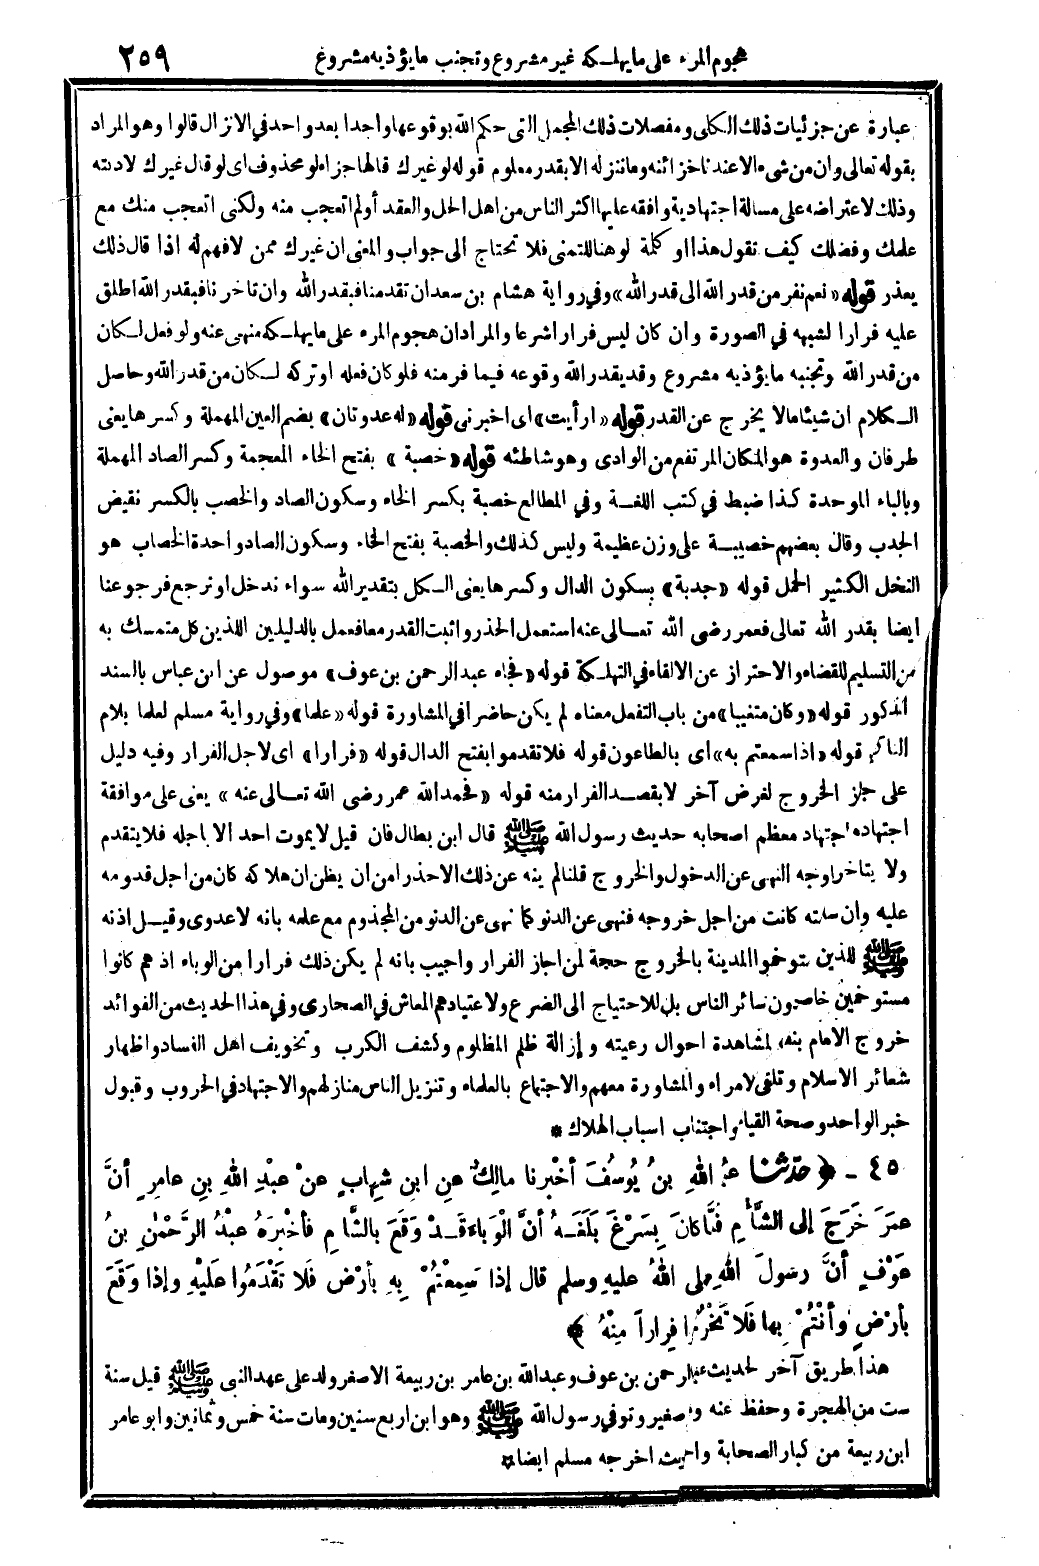 هجوم المرء على ما يهلكه غير مشروع وتجنب ما يؤذيه مشروع ٢٥٩
عبارة عن جزئيات ذلك الكلى ومفصلات ذلك المجمل التى حكم الله بوقوعها واحدا بعد واحد في الانزال قالوا وهو المراد
بقوله تعالى وان من شىء الا عندنا خزائنه وما ننزله الا بقدر معلوم قوله لو غيرك قالها جزاء لو محذوف اى لو قال غيرك لادبته
وذلك لاعتراضه على مسالة اجتهادية وافقه عليها اكثر الناس من اهل الحل والعقد أو لم اتعجب منه ولكنى اتعجب منك مع
علمك وفضلك كيف تقول هذا او كلمة لو هنا للتمنى فلا تحتاج الى جواب والمعنى ان غيرك ممن لا فهم له اذا قال ذلك
يعذر قوله «نعم نفر من قدر الله الى قدر الله» وفي رواية هشام بن سعد ان تقدمنا فبقدر الله وان تاخرنا فبقدر الله اطلق
عليه فرارا لشبهه في الصورة وان كان ليس فرارا شرعا والمراد ان هجوم المرء على ما يهلكه منهى عنه ولو فعل لكان
من قدر الله وتجنبه ما يؤذيه مشروع وقد يقدر الله وقوعه فيما فر منه فلو كان فعله او تركه لكان من قدر الله وحاصل
الكلام ان شيئا ما لا يخرج عن القدر قوله «ارأيت» اى اخبرنى قوله «له عدوتان» بضم العين المهملة وكسرها يعنى
طرفان والعدوة هو المكان المرتفع من الوادى وهو شاطئه قوله «خصبة» بفتح الخاء المعجمة وكسر الصاد المهملة
وبالباء الموحدة كذا ضبط في كتب اللغة وفي المطالع خصبة بكسر الخاء وسكون الصاد والخصب بالكسر نقيض
الجدب وقال بعضهم خصيبة على وزن عظيمة وليس كذلك والخصبة بفتح الخاء وسكون الصاد واحدة الخصاب هو
النخل الكثير الحمل قوله «جدبة» بسكون الدال وكسرها يعنى الكل بتقدير الله سواء ندخل او نرجع فرجوعنا
ايضا بقدر الله تعالى فعمر رضى الله تعالى عنه استعمل الحذر واثبت القدر معا فعمل بالدليلين اللذين كل متمسك به
من التسليم للقضاء والاحتراز عن الالقاء في التهلكة قوله «فجاء عبد الرحمن بن عوف» موصول عن ابن عباس بالسند
المذكور قوله «وكان متغيبا» من باب التفعل معناه لم يكن حاضرا في المشاورة قوله «علما» وفي رواية مسلم لعلما بلام
التاكيد قوله «اذا سمعتم به» اى بالطاعون قوله فلا تقدموا بفتح الدال قوله «فرارا» اى لاجل الفرار وفيه دليل
على جواز الخروج لغرض آخر لا بقصد الفرار منه قوله «فحمد الله عمر رضى الله تعالى عنه» يعنى على موافقة
اجتهاده اجتهاد معظم اصحابه حديث رسول الله ﷺ قال ابن بطال فان قيل لا يموت احد الا باجله فلا يتقدم
ولا يتاخر فما وجه النهى عن الدخول والخروج قلنا لم ينه عن ذلك الا حذرا من ان يظن ان هلاكه كان من اجل قدومه
عليه وان سلامته كانت من اجل خروجه فنهى عن الدنو كما نهى عن الدنو من المجذوم مع علمه بانه لا عدوى وقيل اذنه
ﷺ للذين استوخموا المدينة بالخروج حجة لمن اجاز الفرار واجيب بانه لم يكن ذلك فرارا من الوباء اذ هم كانوا
مستوخمين خاصة دون سائر الناس بل للاحتياج الى الضرع ولاعتيادهم المعاش في الصحارى وفي هذا الحديث من الفوائد
خروج الامام بنفسه لمشاهدة احوال رعيته وإزالة ظلم المظلوم وكشف الكرب وتخويف اهل الفساد واظهار
شعائر الاسلام وتلقى الامراء والمشاورة معهم والاجتماع بالعلماء وتنزيل الناس منازلهم والاجتهاد في الحروب وقبول
خبر الواحد وصحة القياس واجتناب اسباب الهلاك *
٤٥ - ﴿ حدثنا عبد الله بنُ يُوسُفَ أخْبرنا مالِكٌ عنِ ابنِ شِهابٍ عنْ عبْدِ اللهِ بنِ عامِرٍ أنَّ
عمَرَ خَرَجَ إلى الشَّأْمِ فلَمَّا كانَ بِسَرْغَ بَلَغَهُ أنَّ الْوَباءَ قَدْ وَقَعَ بالشَّامِ فأخْبرَهُ عبْدُ الرَّحْمٰنِ بنُ
عَوْفٍ أنَّ رسولَ اللهِ صلى اللهُ عليهِ وسلم قال إذا سَمِعْتُمْ بِهِ بأرْضٍ فَلا تَقْدَمُوا عَلَيْهِ وإذا وَقَعَ
بأرْضٍ وأنْتُمْ بِها فَلا تَخْرُجُوا فِراراً مِنْهُ ﴾
هذا طريق آخر لحديث عبد الرحمن بن عوف وعبد الله بن عامر بن ربيعة الاصغر ولد على عهد النبى ﷺ قيل سنة
ست من الهجرة وحفظ عنه وهو صغير وتوفي رسول الله ﷺ وهو ابن اربع سنين ومات سنة خمس وثمانين وابو عامر
ابن ربيعة من كبار الصحابة والحديث اخرجه مسلم ايضا *